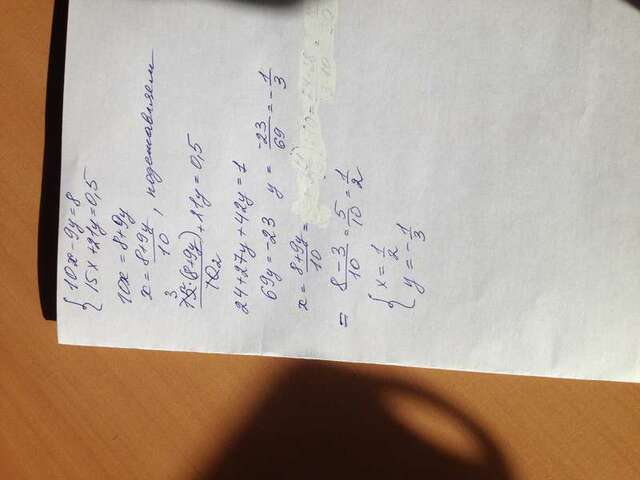 { 10x - 9y = 8
15x + 21y = 0,5
10x = 8 + 9y
x = \frac{8+9y}{10}, подставляем
\frac{^3 15·(8+9y)}{10_2} + 21y = 0,5
24 + 27y + 42y = 1
69y = -23 y = \frac{-23}{69} = -\frac{1}{3}
x = \frac{8+9y}{10} =
= \frac{8-3}{10} = \frac{5}{10} = \frac{1}{2}
{ x = \frac{1}{2}
y = -\frac{1}{3}